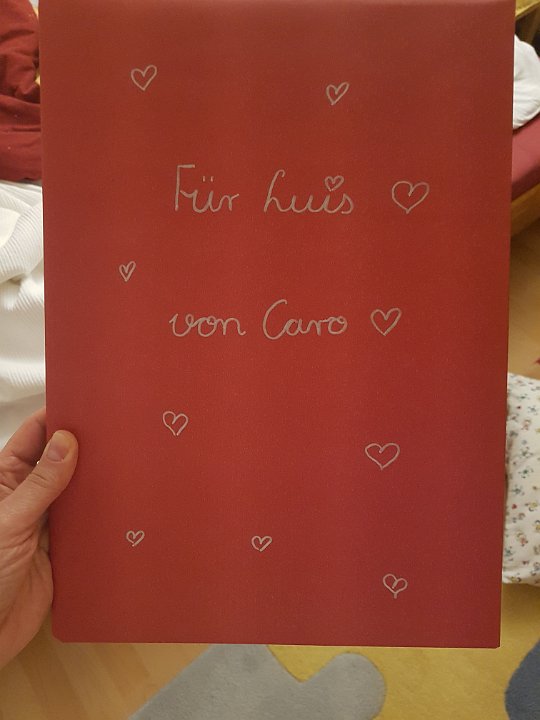 Für Luis
von Caro